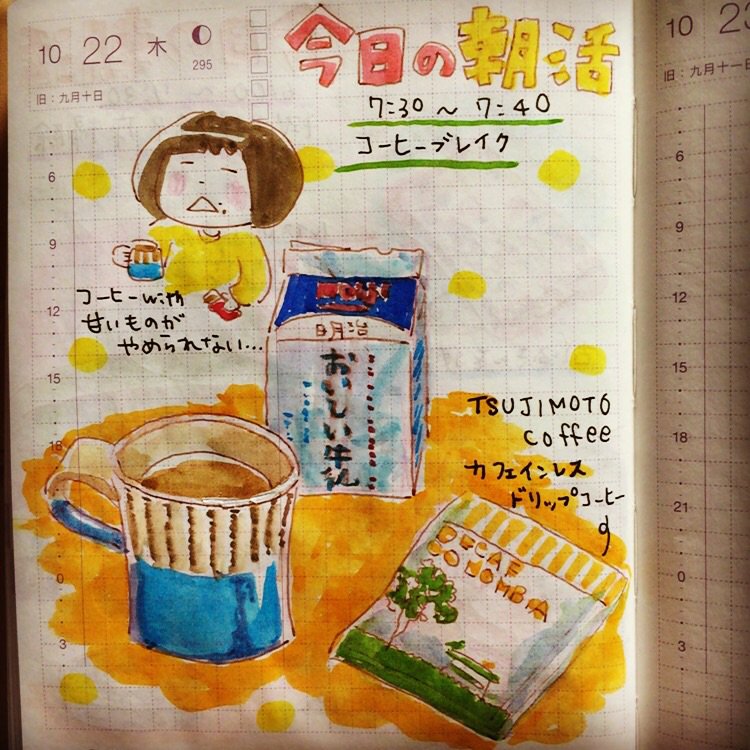 10 22 木
295
旧：九月十日
今日の朝活
7:30 〜 7:40
コーヒーブレイク
コーヒーwith
甘いものが
やめられない…
meiji
明治
おいしい牛乳
TSUJIMOTO
coffee
カフェインレス
ドリップコーヒー
DECAF
COLOMBIA
6
9
12
15
18
0
3
10 23
旧：九月十一
6
9
12
18
21
0
3